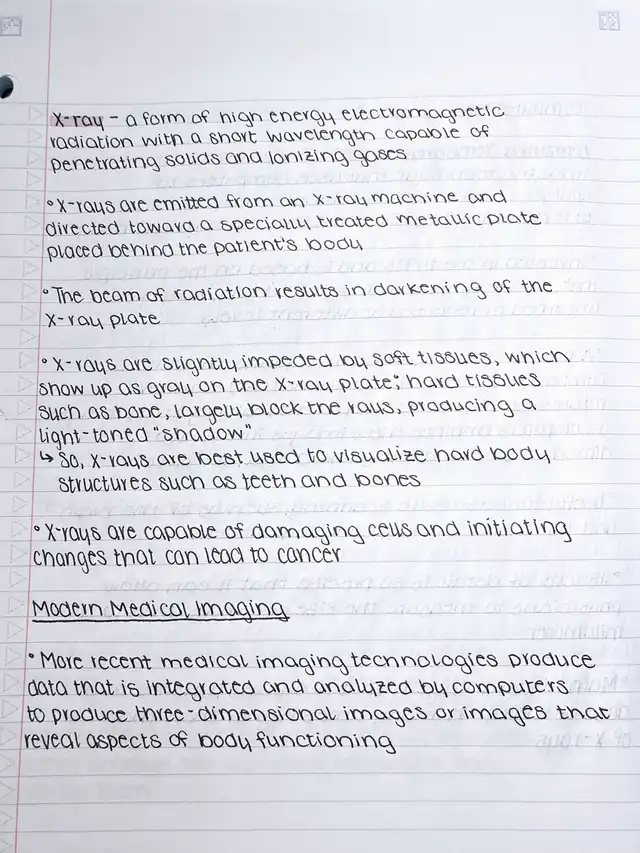 X-ray - a form of high energy electromagnetic
radiation with a short wavelength capable of
penetrating solids and ionizing gases
°X-rays are emitted from an X-ray machine and
directed toward a specially treated metallic plate
placed behind the patient's body
°The beam of radiation results in darkening of the
X-ray plate
°X-rays are slightly impeded by soft tissues, which
show up as gray on the X-ray plate; hard tissues
such as bone, largely block the rays, producing a
light-toned "shadow"
↳ So, X-rays are best used to visualize hard body
structures such as teeth and bones
°X-rays are capable of damaging cells and initiating
changes that can lead to cancer
Modern Medical Imaging
°More recent medical imaging technologies produce
data that is integrated and analyzed by computers
to produce three-dimensional images or images that
reveal aspects of body functioning